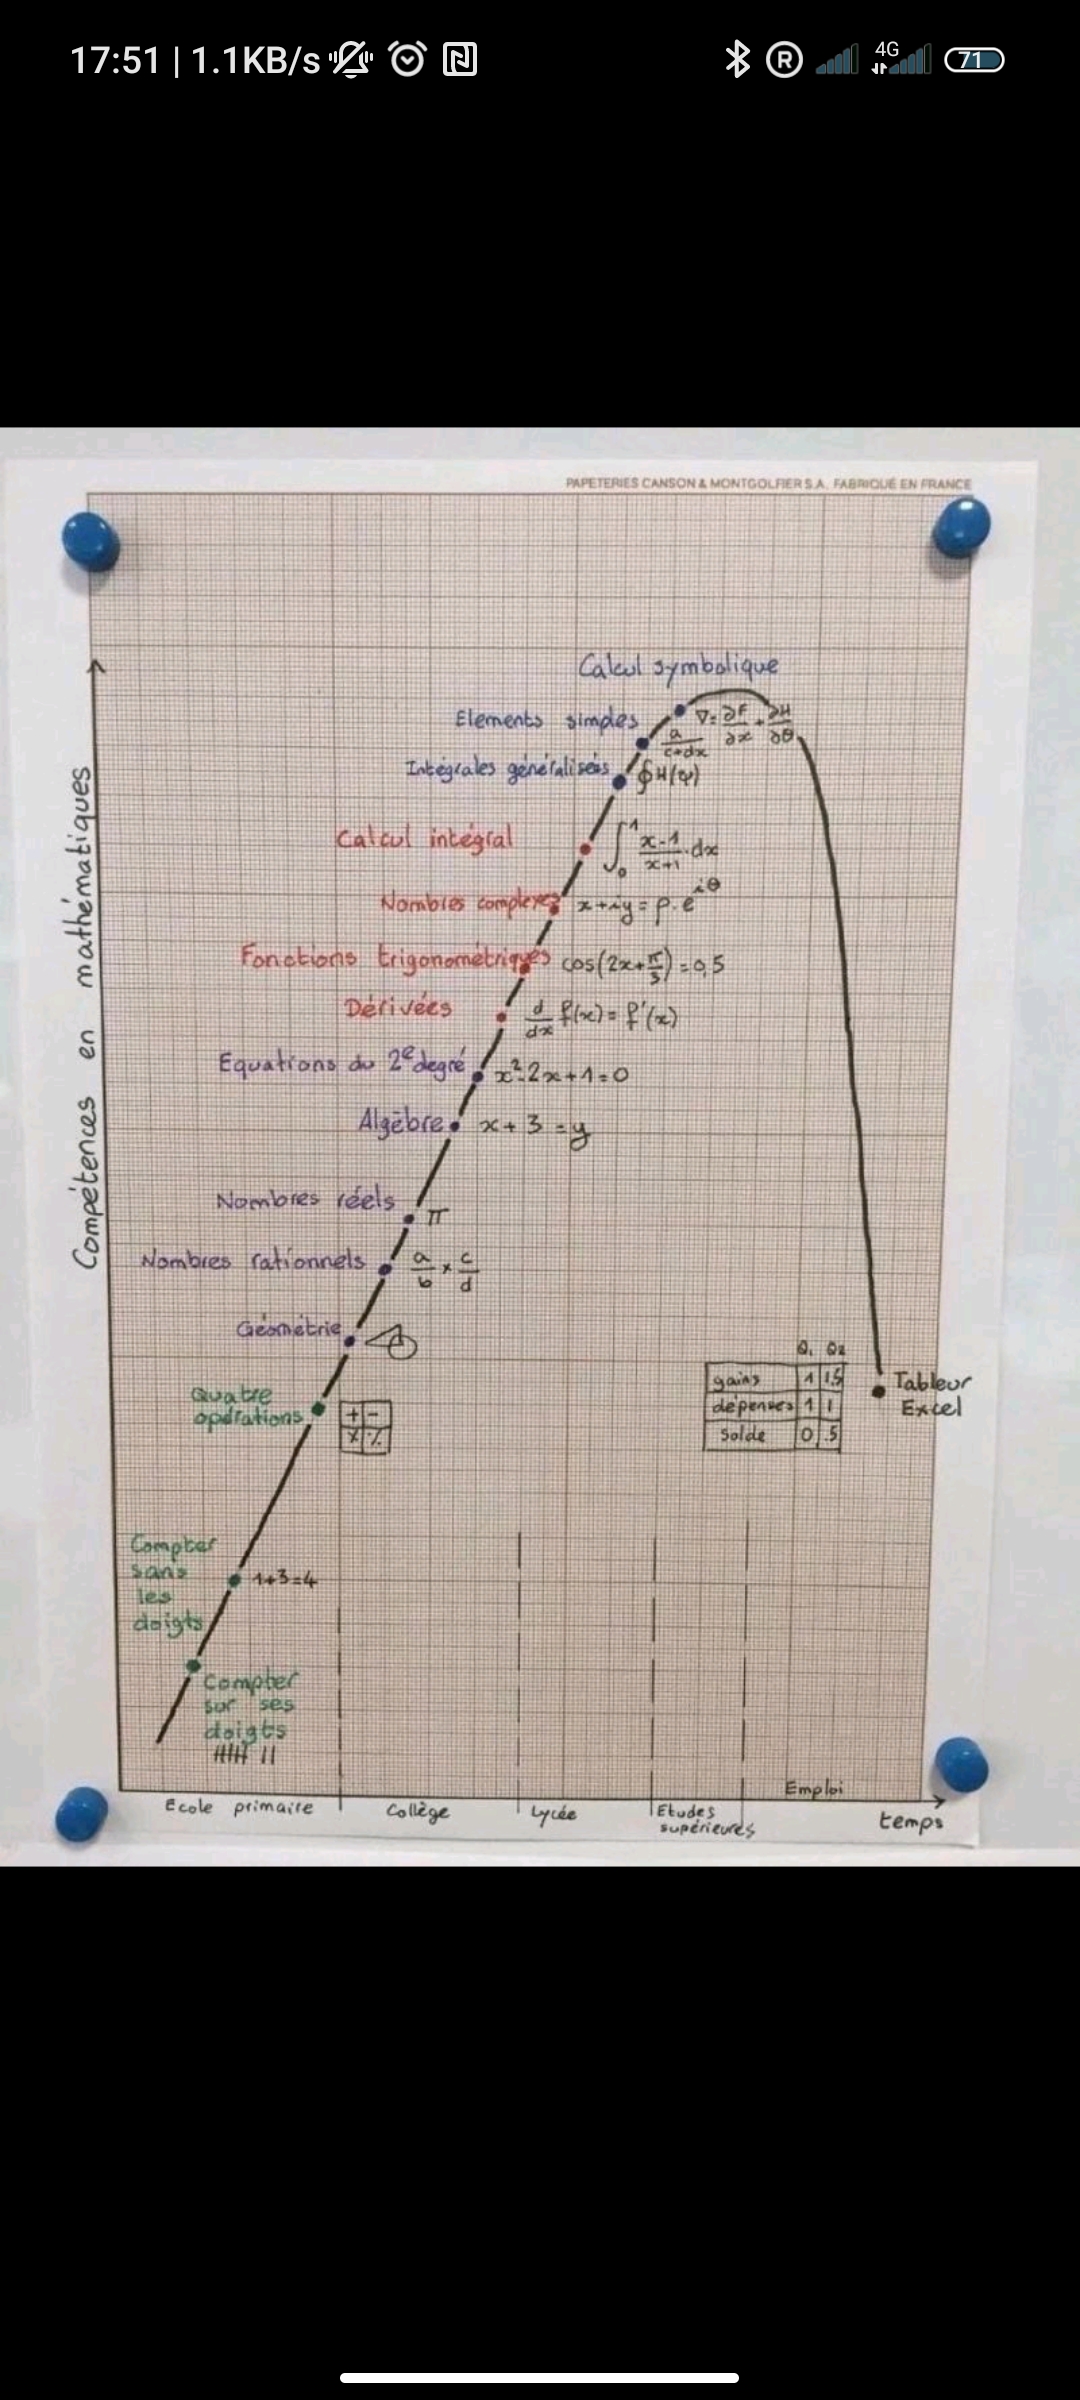 17:51 | 1.1KB/s
4G
71
PAPETERIES CANSON & MONTGOLFIER S.A. FABRIQUÉ EN FRANCE
Compétences en mathématiques
Calcul symbolique
Elements simples
∇=∂F/∂x + ∂H/∂θ
a/c+dx
Intégrales généralisées
∮H(φ)
Calcul intégral
∫₀¹ x-1/x+1 .dx
Nombres complexes
x+iy=ρ.e^iθ
Fonctions trigonométriques
cos(2x+π/3)=0,5
Dérivées
d/dx f(x)=f'(x)
Equations du 2e degré
x²-2x+1=0
Algèbre
x+3=y
Nombres réels
π
Nombres rationnels
a/b × c/d
Géométrie
Quatre
opérations
+ -
× %
Q1 Q2
gains 1 1,5
dépenses 1 1
Solde 0 .5
Tableur
Excel
Compter
sans
les
doigts
1+3=4
Compter
sur ses
doigts
Ecole primaire
Collège
Lycée
Etudes
supérieures
Emploi
temps